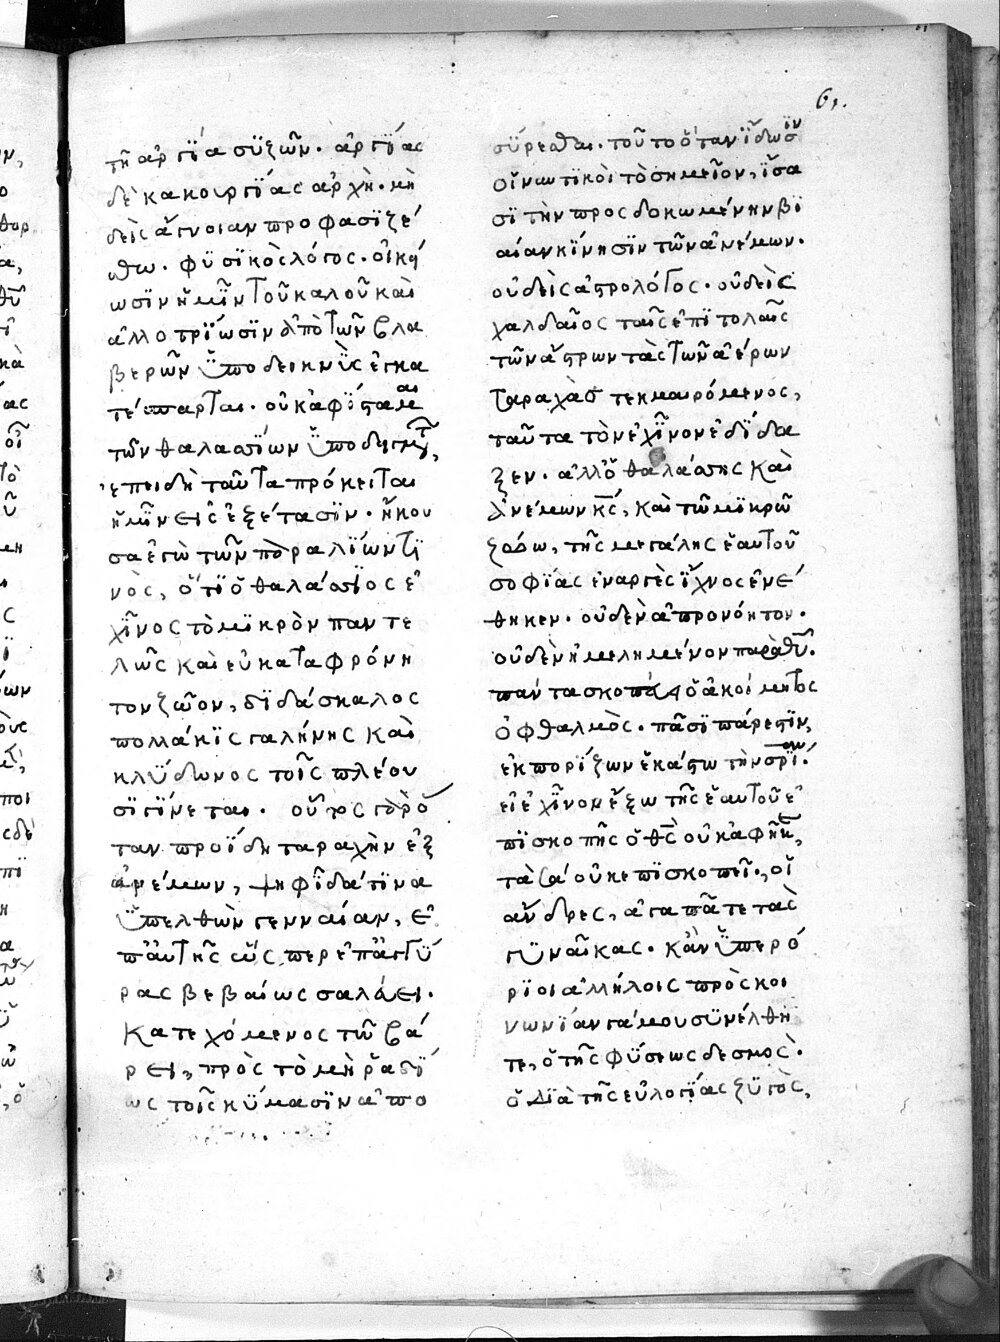 61.
τῇ ἀργΐα συζῶν. ἀργΐας
δὲ κακουργΐας ἀρχὴ. μὴ
δεὶς ἄγνοιαν προφασϊζέ
σθω. φϋσϊκὸς λόγος. οἰκεί
ωσϊν ἡμῖν τοῦ καλοῦ καὶ
ἀλλοτρΐωσϊν ἀπὸ τῶν βλα
βερῶν ὑποδεικνῢς ἐγκα
τέσπαρται. οὐκ ἀφΐσταμαι
τῶν θαλασσΐων ὑποδειγμάτ,
ἐπειδὴ ταῦτα πρόκειται
ἡμῖν εἰς ἐξέτασϊν. ἤκου
σα ἐγὼ τῶν παραλΐων τϊ
νὸς, ὅτϊ ὁ θαλάσσϊος ἐ
χῖνος τὸ μϊκρὸν παντε
λῶς καὶ εὐκαταφρόνη
τον ζῶον, δϊδάσκαλος
πολλάκϊς γαλήνης καὶ
κλΰδωνος τοῖς πλέου
σϊ γΐνεται. οὗτος γὰρ ὅ
ταν προΐδη ταραχὴν ἐξ
ἀνέμων, ψηφῖδά τϊνα
ὑπελθὼν γενναίαν, ἐ
π' αὐτῆς ὥς περ ἐπ' ἀγκΰ
ρας βεβαίως σαλεύει.
κατεχόμενος τῶ βά
ρει, πρὸς τὸ μὴ ῥαδΐ
ως τοῖς κΰμασϊν ἀπο
σΰρεσθαι. τοῦτο ὅταν ΐδωσϊν
οἱ ναυτϊκοὶ τὸ σημεῖον, ἴσα
σϊ τὴν προςδοκωμένην βϊ
αίαν κΐνησϊν τῶν ἀνέμων.
οὐδεὶς ἀστρολόγος. οὐδεὶς
χαλδαῖος ταῖς ἐπϊτολαῖς
τῶν ἄστρων τὰς τῶν ἀέρων
ταραχὰς τεκμαιρόμενος,
ταῦτα τὸν ἐχῖνον ἐδΐδα
ξεν. ἀλλ' ὁ θαλάσσης καὶ
ἀνέμων κς, καὶ τῶ μϊκρῶ
ζώω, τῆς μεγάλης ἑαυτοῦ
σοφΐας ἐναργὲς ΐχνος ἐνέ
θηκεν. οὐδὲν ἀπρονόητον.
οὐδὲν ἠμελημένον παρὰ θυ.
πάντα σκοπεῖ ὁ ἀκοίμητος
ὀφθαλμὸς. πᾶσϊ πάρεστϊν,
ἐκπορΐζων ἑκάστω τὴν σρΐαν.
εἰ ἐχῖνον ἔξω τῆς ἑαυτοῦ ἐ
πϊσκοπῆς ὁ θς οὐκ ἀφῆκεν,
τὰ σὰ οὐκ ἐπϊσκοπεῖ., οἱ
ἄνδρες, ἀγαπᾶτε τὰς
γϋναῖκας. κἂν ὑπερό
ρϊοι ἀλλήλοις πρὸς κοι
νωνΐαν γάμου συνέλθη
τε, ὁ τῆς φΰσεως δεσμὸς.
ὁ δϊὰ τῆς εὐλογΐας ζϋγὸς,